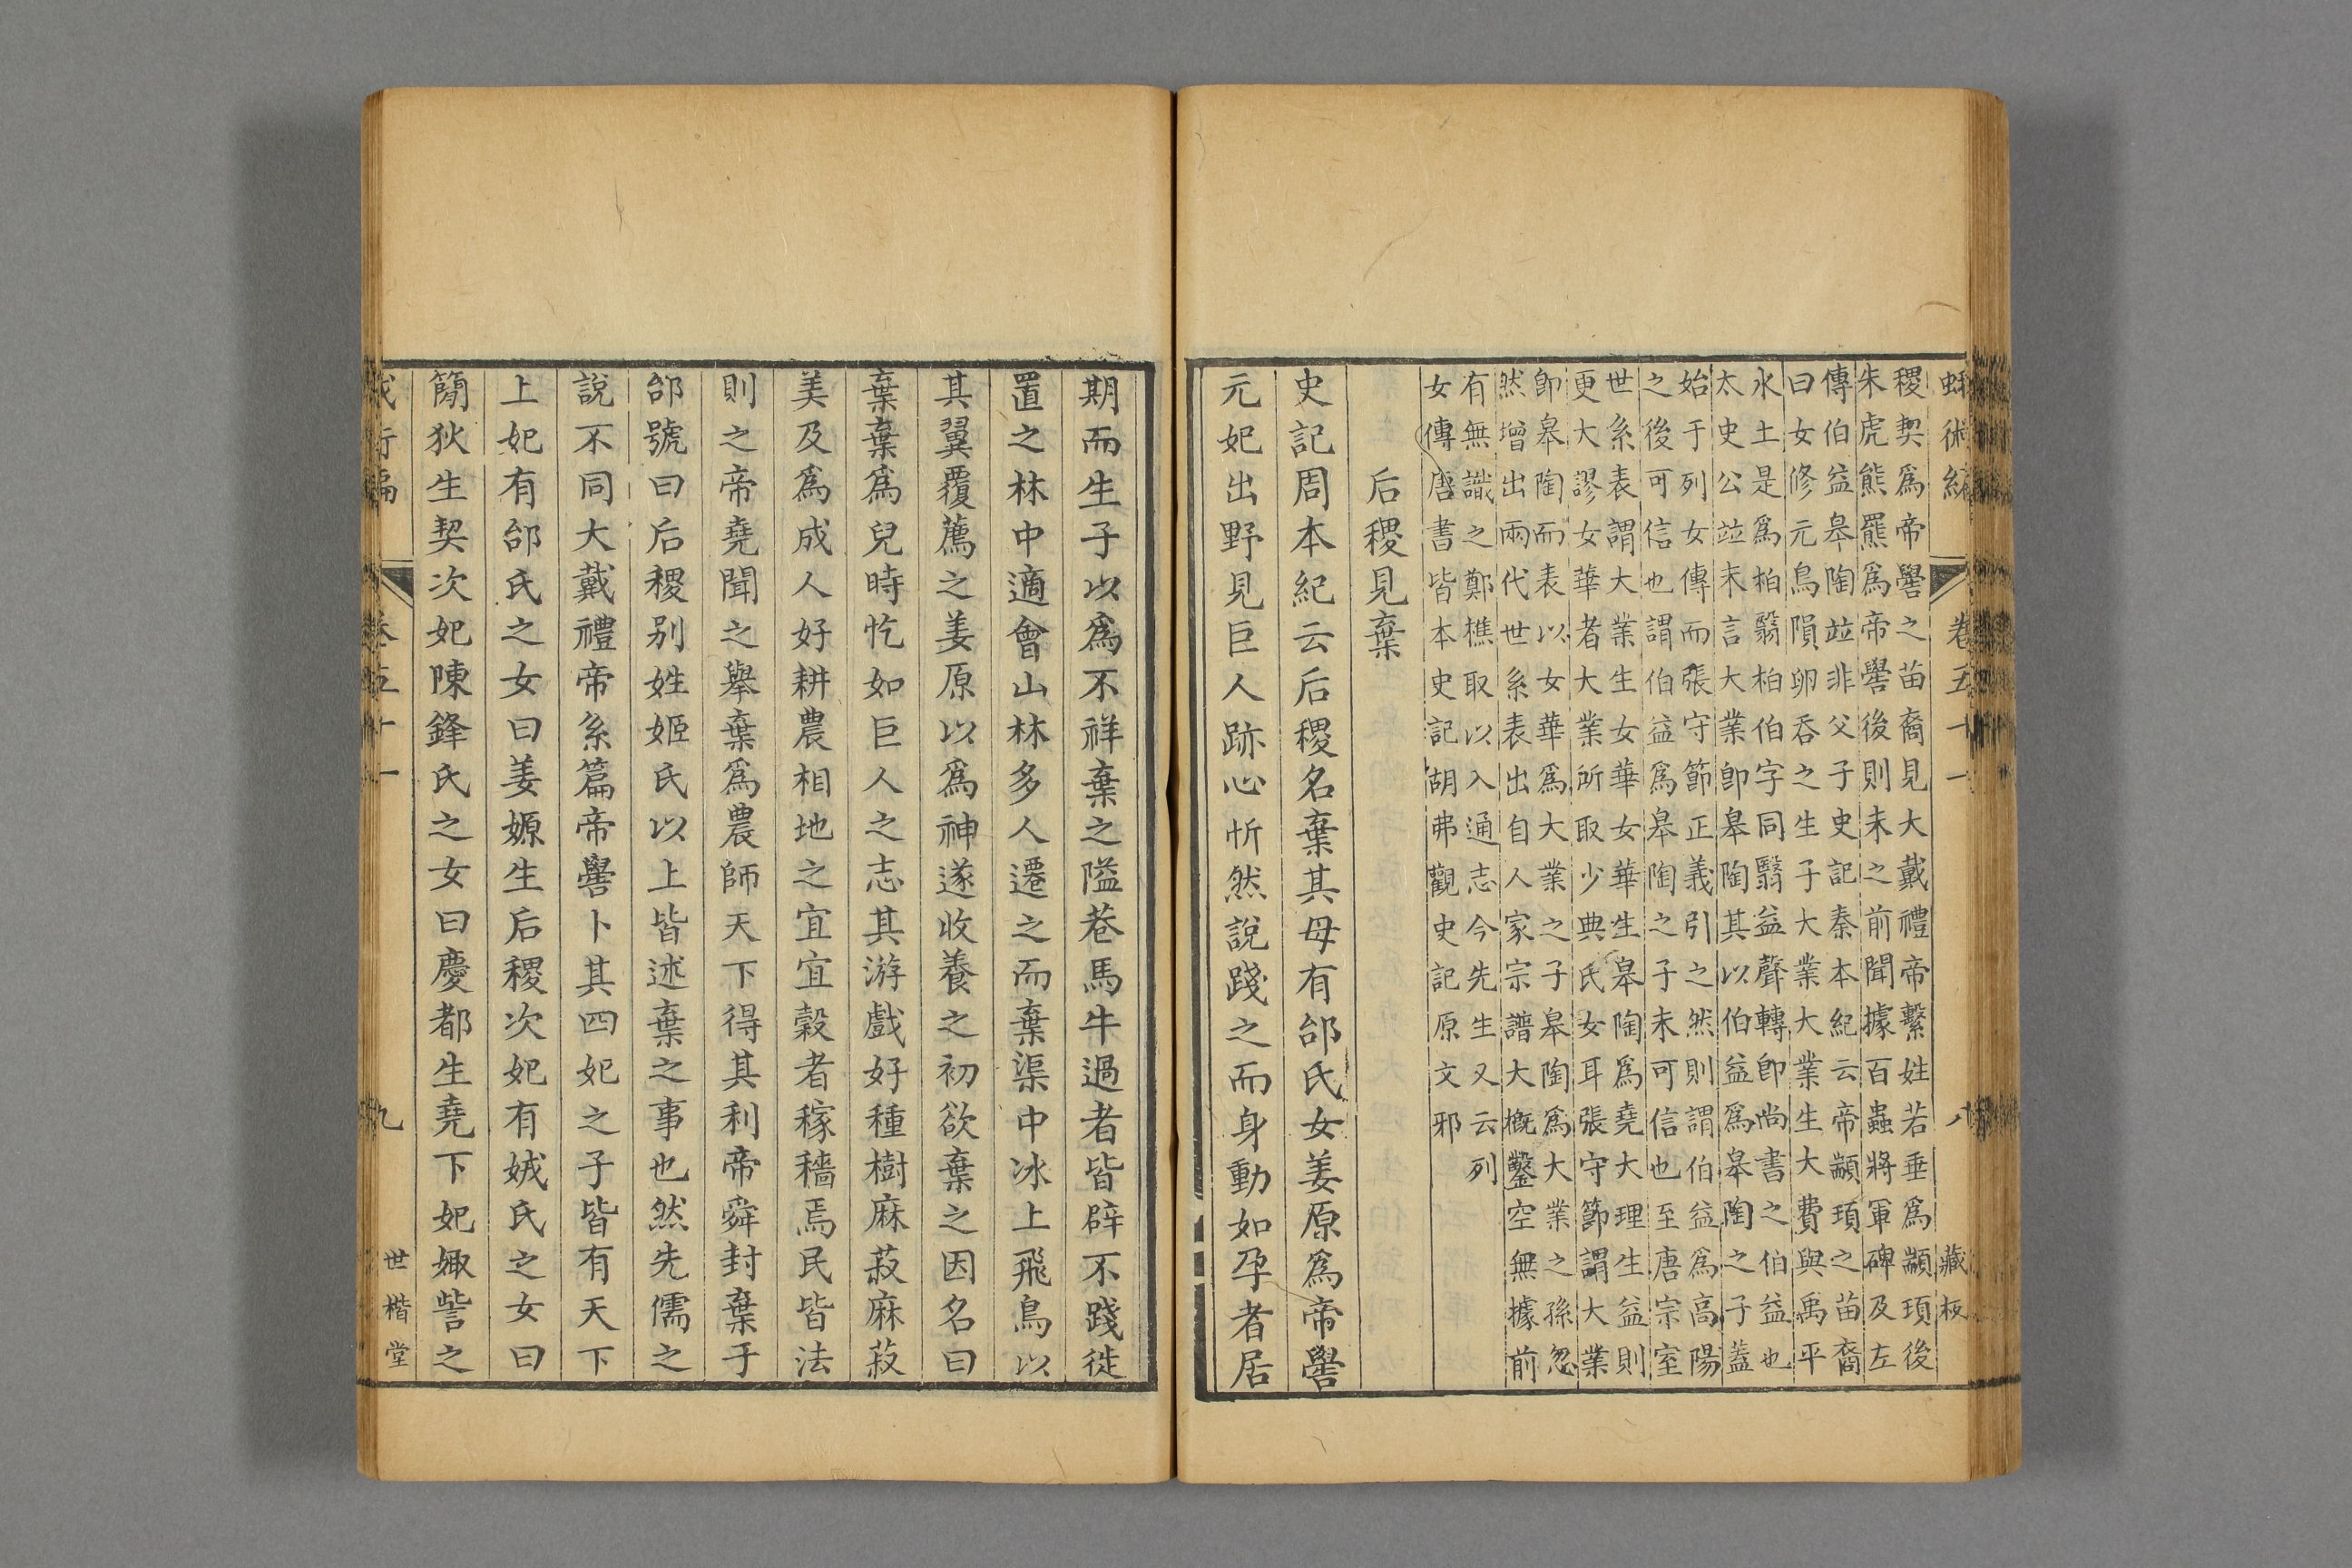 蛾術編 卷五十一 八 藏板
稷契爲帝嚳之苗裔見大戴禮帝繫姓若垂爲顓頊後
朱虎熊羆爲帝嚳後則未之前聞據百蟲將軍碑及左
傳伯益皋陶竝非父子史記秦本紀云帝顓頊之苗裔
曰女修元鳥隕卵吞之生子大業大業生大費與禹平
水土是爲柏翳柏伯字同翳益聲轉卽尚書之伯益也
太史公竝未言大業卽皋陶其以伯益爲皋陶之子蓋
始于列女傳而張守節正義引之然則謂伯益爲高陽
之後可信也謂伯益爲皋陶之子未可信也至唐宗室
世系表謂大業生女華女華生皋陶爲堯大理生益則
更大謬女華者大業所取少典氏女耳張守節謂大業
卽皋陶而表以女華爲大業之子皋陶爲大業之孫忽
然增出兩代世系表出自人家宗譜大概鑿空無據前
有無識之鄭樵取以入通志今先生又云列
女傳唐書皆本史記胡弗觀史記原文邪
后稷見棄
史記周本紀云后稷名棄其母有邰氏女姜原爲帝嚳
元妃出野見巨人跡心忻然說踐之而身動如孕者居
期而生子以爲不祥棄之隘巷馬牛過者皆辟不踐徙
置之林中適會山林多人遷之而棄渠中冰上飛鳥以
其翼覆薦之姜原以爲神遂收養之初欲棄之因名曰
棄棄爲兒時忔如巨人之志其游戲好種樹麻菽麻菽
美及爲成人好耕農相地之宜宜穀者稼穡焉民皆法
則之帝堯聞之舉棄爲農師天下得其利帝舜封棄于
邰號曰后稷别姓姬氏以上皆述棄之事也然先儒之
說不同大戴禮帝系篇帝嚳卜其四妃之子皆有天下
上妃有邰氏之女曰姜嫄生后稷次妃有娀氏之女曰
簡狄生契次妃陳鋒氏之女曰慶都生堯下妃娵訾之
術編 卷五十一 九 世楷堂